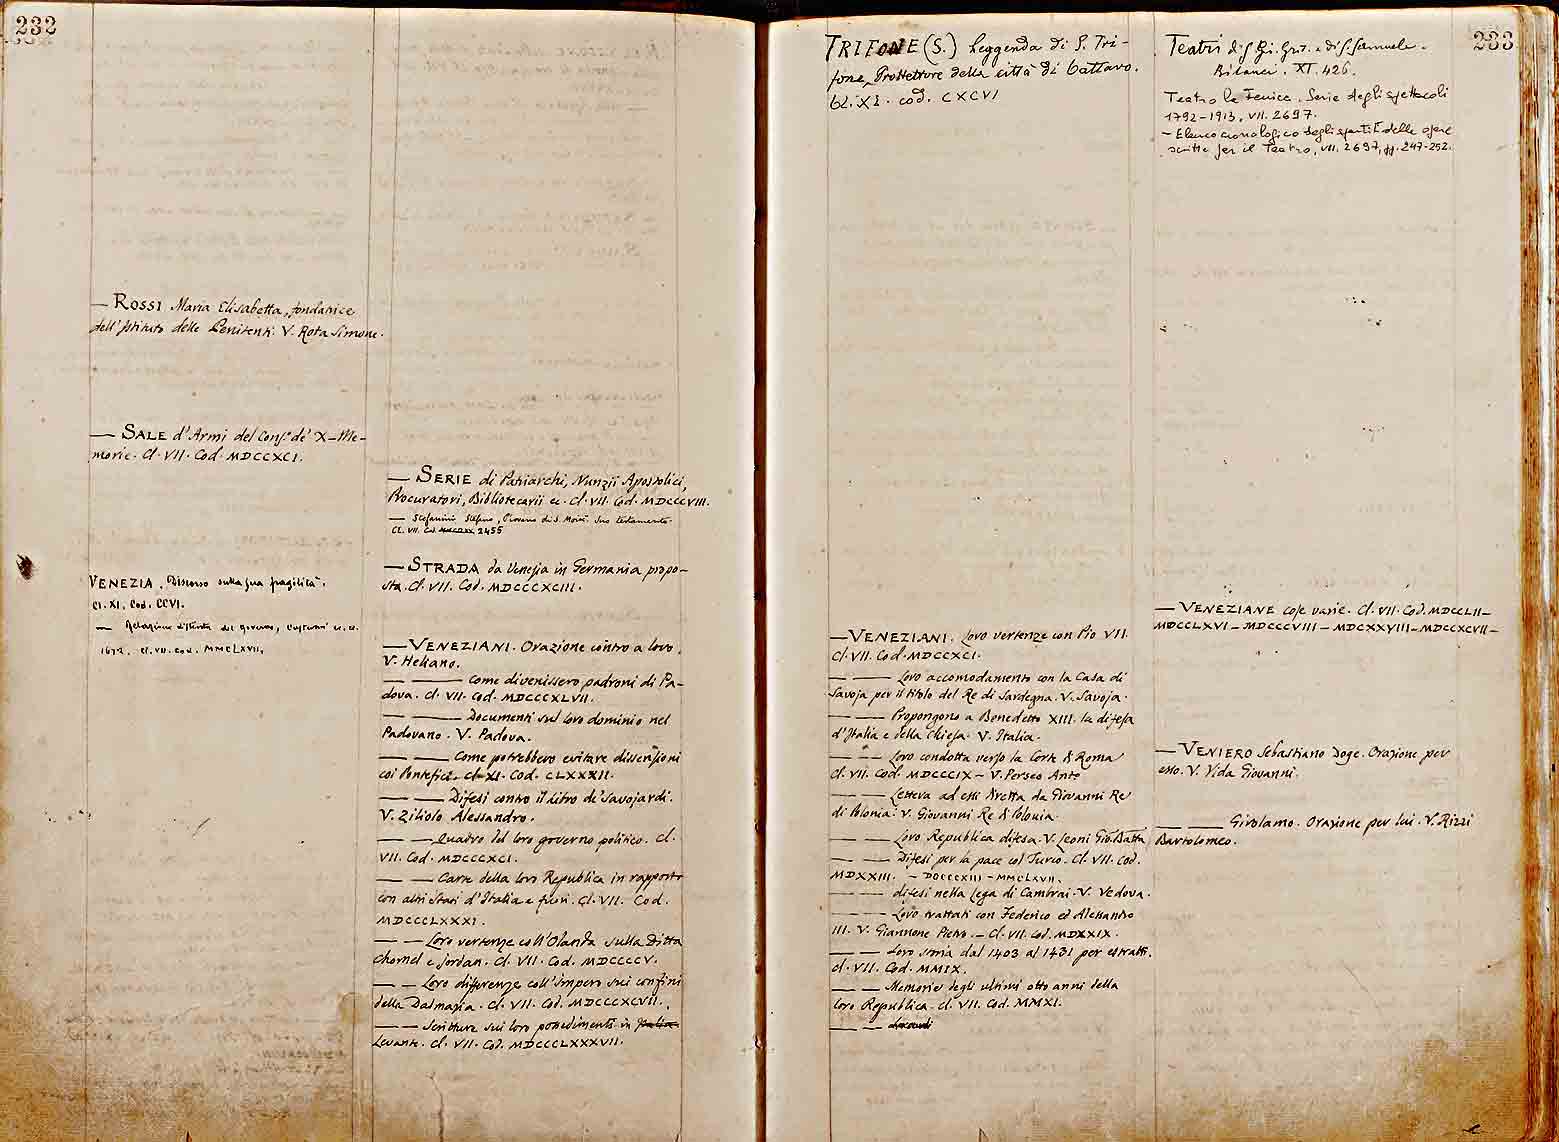 232
— ROSSI Maria Elisabetta, fondatrice
dell'Istituto delle Penitenti. V. Rota Simone.
— SALE d'Armi del Consº de' X — Me-
morie. Cl. VII. Cod. MDCCXCI.
VENEZIA. Discorso sulla sua fragilità.
Cl. XI. Cod. CCVI.
— Relazione distinta del governo, costumi ec. ec.
1672. Cl. VII. Cod. MMCLXVII.
— SERIE di Patriarchi, Nunzii Apostolici,
Procuratori, Bibliotecarii ec. Cl. VII. Cod. MDCCCVIII.
— Stefanini Stefano, Piovano di S. Moisè. Suo testamento.
Cl. VII. Cod. 2455
— STRADA da Venezia in Germania propo-
sta. Cl. VII. Cod. MDCCCXCIII.
— VENEZIANI. Orazione contro a loro.
V. Heliano.
— — come divenissero padroni di Pa-
dova. Cl. VII. Cod. MDCCCXLVII.
— — Documenti sul loro dominio nel
Padovano. V. Padova.
— — Come potrebbero evitare dissensioni
coi Pontefici. Cl. XI. Cod. CLXXXII.
— — Difesi contro il Libro de' Savojardi.
V. Ziliolo Alessandro.
— — Quadro del loro governo politico. Cl.
VII. Cod. MDCCCXCI.
— — Carte della loro Republica in rapporto
con altri Stati d'Italia e fuori. Cl. VII. Cod.
MDCCCLXXXI.
— — Loro vertenze coll'Olanda sulla Ditta
Chomel e Jordan. Cl. VII. Cod. MDCCCCV.
— — Loro differenze coll'Impero sui confini
della Dalmazia. Cl. VII. Cod. MDCCCXCVII.
— — Scritture sui loro possedimenti in Italia
Levante. Cl. VII. Cod. MDCCCLXXXVII.
TRIFONE (S.) Leggenda di S. Tri-
fone, Protettore della città di Cattaro.
Cl. XI. cod. CXCVI
— VENEZIANI. Loro vertenze con Pio VII.
Cl. VII. Cod. MDCCXCI.
— — Loro accomodamento con la Casa di
Savoja per il titolo del Re di Sardegna. V. Savoja.
— — Propongono a Benedetto XIII. la difesa
d'Italia e della Chiesa. V. Italia.
— — Loro condotta verso la Corte di Roma
Cl. VII. Cod. MDCCCIX — V. Perseo Antº
— — Lettera ad essi diretta da Giovanni Re
di Polonia. V. Giovanni Re di Polonia.
— — Loro Republica difesa. V. Leoni Gio. Batta
— — Difesi per la pace col Turco. Cl. VII. Cod.
MDXXIII. — DCCCCXIII — MMCLXVII.
— — difesi nella Lega di Cambrai. V. Vedova.
— — Loro trattati con Federico ed Alessandro
III. V. Giannone Pietro. — Cl. VII. Cod. MDXXIX.
— — Loro storia dal 1403 al 1431 per estratti.
Cl. VII. Cod. MMIX.
— — Memorie degli ultimi otto anni della
loro Republica. Cl. VII. Cod. MMXI.
— —
233
Teatri di S. Gi. Gris. e di S. Samuele.
Bilanci. XI. 426.
Teatro la Fenice. Serie degli spettacoli
1792-1913, VII. 2697.
— Elenco cronologico degli spartiti delle opere
scritte per il Teatro, VII. 2697, pp. 247-252.
— VENEZIANE cose varie. Cl. VII. Cod. MDCCLII —
MDCCLXVI — MDCCCVIII — MDCXXVIII — MDCCXCVII —
— VENIERO Sebastiano Doge. Orazione per
esso. V. Vida Giovanni.
— — Girolamo. Orazione per lui. V. Rizzi
Bartolomeo.